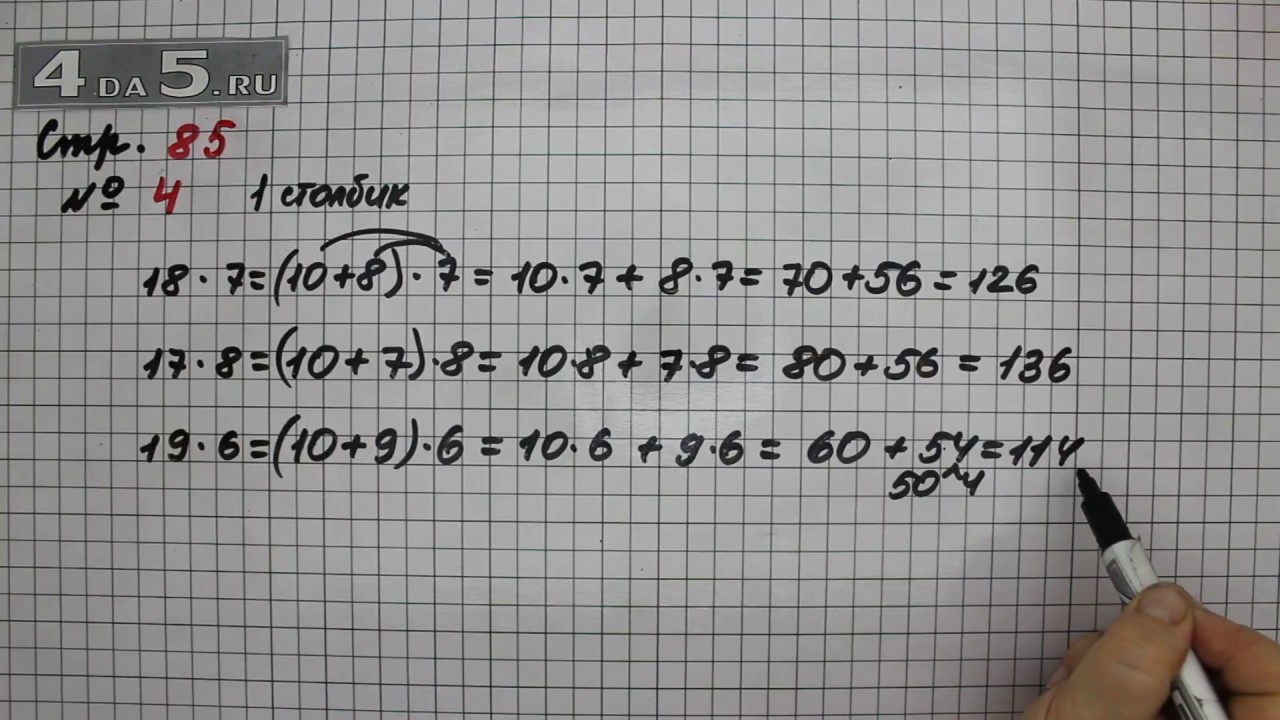 4DA5.RU
Стр. 85
№ 4 1 столбик
18 · 7 = (10 + 8) · 7 = 10 · 7 + 8 · 7 = 70 + 56 = 126
17 · 8 = (10 + 7) · 8 = 10 · 8 + 7 · 8 = 80 + 56 = 136
19 · 6 = (10 + 9) · 6 = 10 · 6 + 9 · 6 = 60 + 54 = 114
50 4